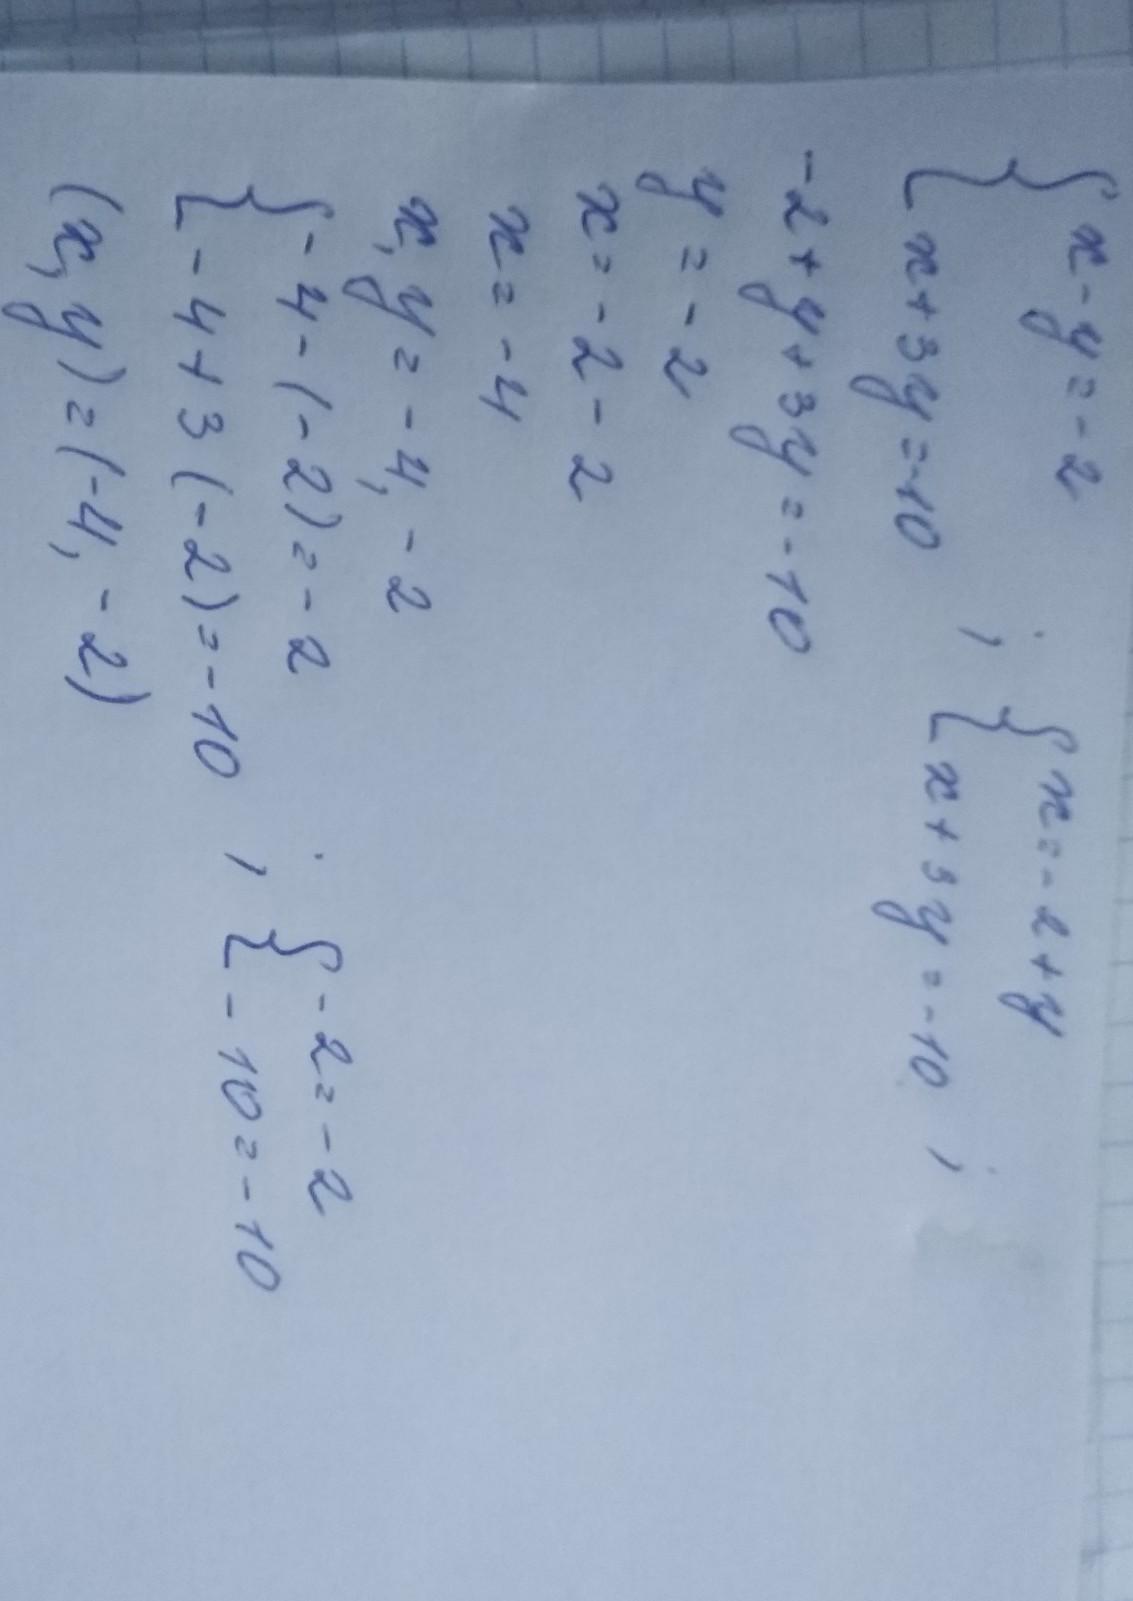 { x-y=-2 ; { x=-2+y
{ x+3y=-10 { x+3y=-10 ;
-2+y+3y=-10
y=-2
x=-2-2
x=-4
x,y=-4,-2
{ -4-(-2)=-2 ; { -2=-2
{ -4+3(-2)=-10 { -10=-10
(x,y)=(-4,-2)